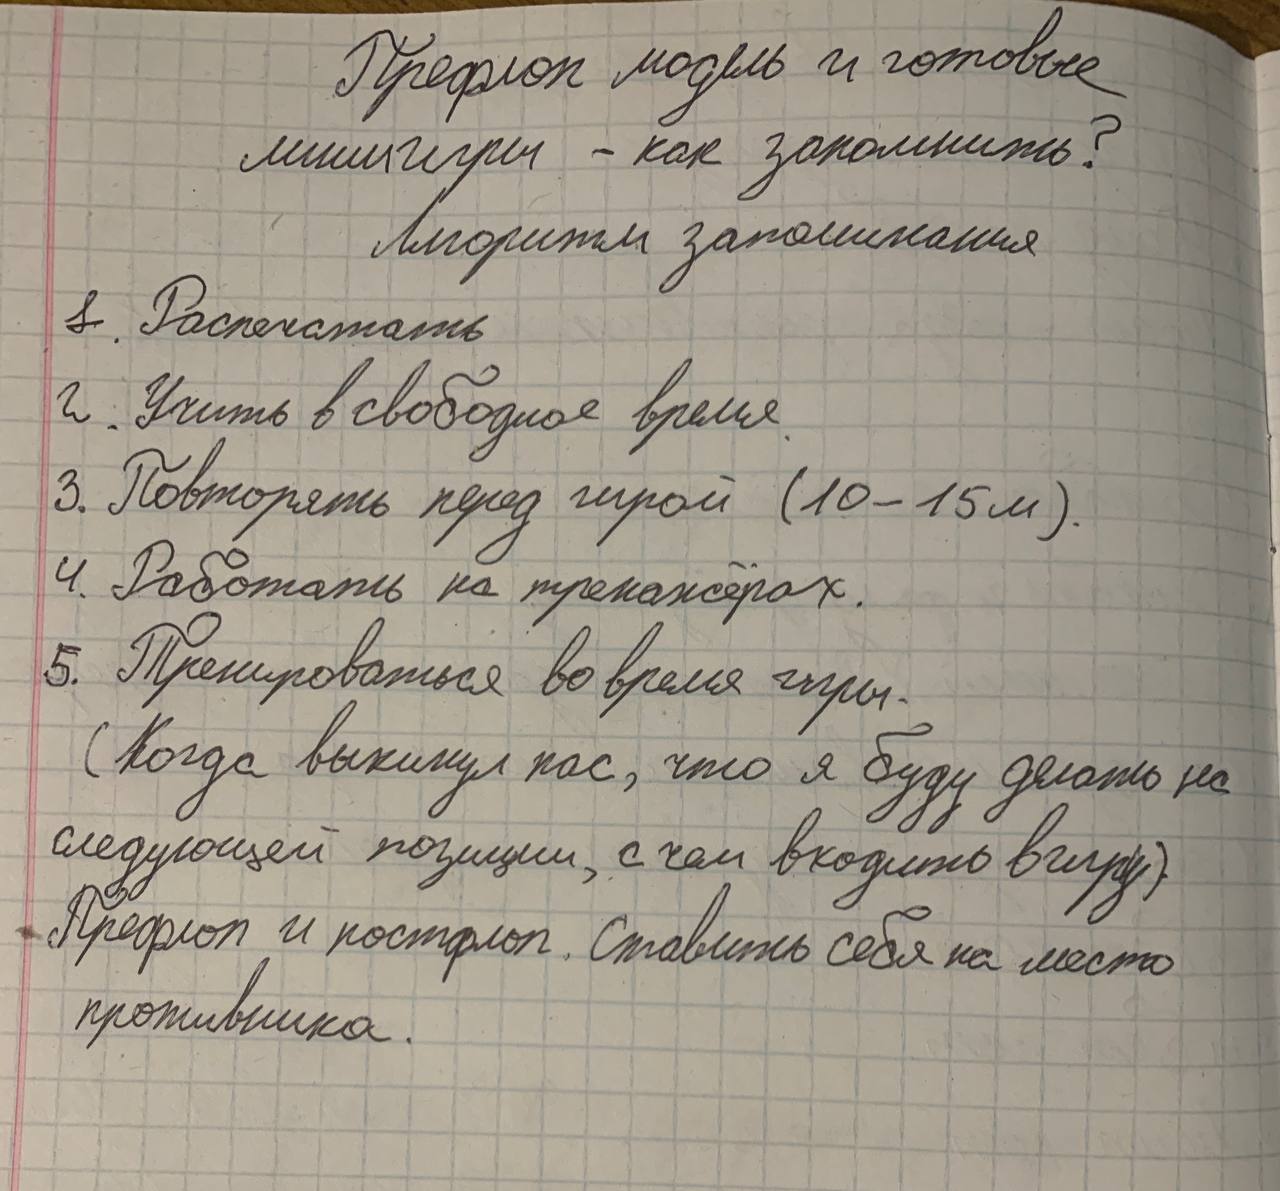 Префлоп модель и готовые
минигры - как запомнить?
Алгоритм запоминания
1. Распечатать
2. Учить в свободное время.
3. Повторять перед игрой (10-15м).
4. Работать на тренажёрах.
5. Тренироваться во время игры.
(Когда выкинул пас, что я буду делать на
следующей позиции, с чем входить в игру)
Префлоп и постфлоп. Ставить себя на место
противника.